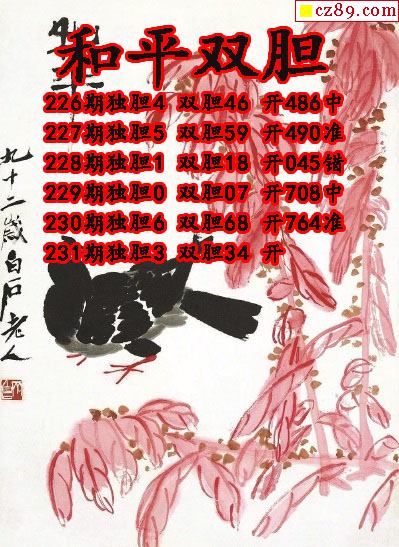 cz89.com
和平双胆
226期独胆4 双胆46 开486中
227期独胆5 双胆59 开490准
228期独胆1 双胆18 开045错
229期独胆0 双胆07 开708中
230期独胆6 双胆68 开764准
231期独胆3 双胆34 开
九十二岁白石老人